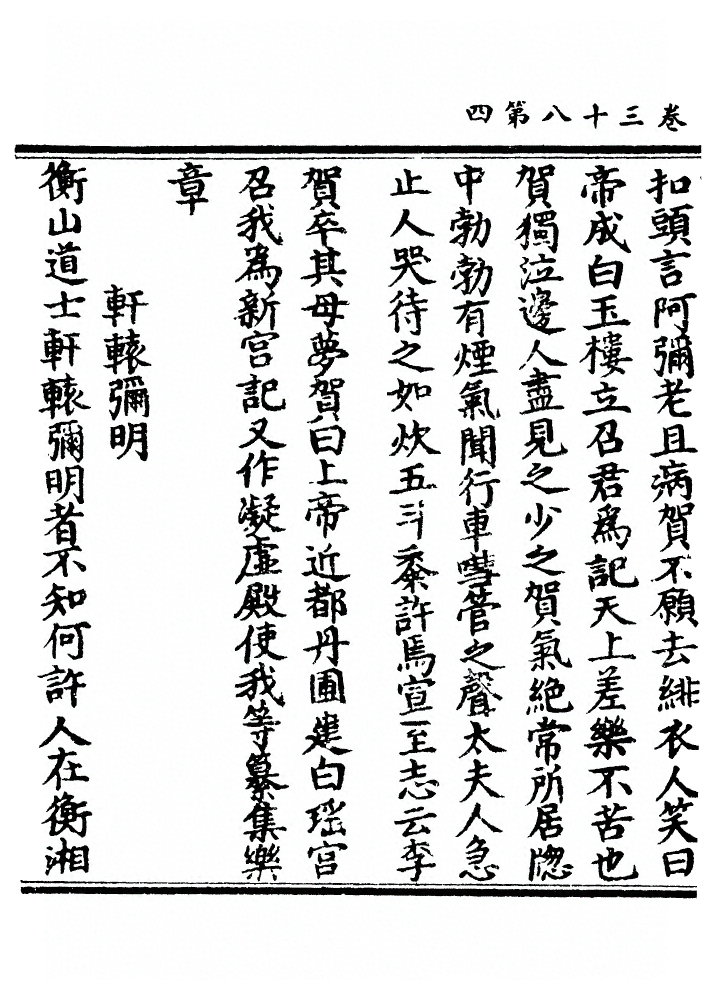 卷三十八第四
扣頭言阿彌老且病賀不願去緋衣人笑曰
帝成白玉樓立召君爲記天上差樂不苦也
賀獨泣邊人盡見之少之賀氣絶常所居窗
中勃勃有煙氣聞行車嘒管之聲太夫人急
止人哭待之如炊五斗黍許焉宣至志云李
賀卒其母夢賀曰上帝近都丹圃建白瑤宮
召我爲新宮記又作凝虛殿使我等纂集樂
章
軒轅彌明
衡山道士軒轅彌明者不知何許人在衡湘